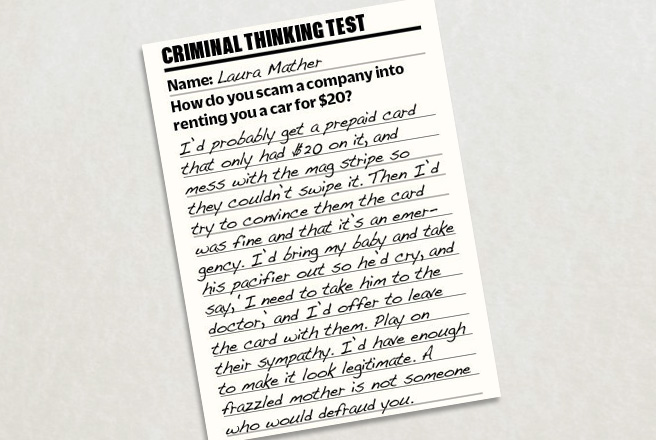 CRIMINAL THINKING TEST
Name: Laura Mather
How do you scam a company into
renting you a car for $20?
I'd probably get a prepaid card
that only had $20 on it, and
mess with the mag stripe so
they couldn't swipe it. Then I'd
try to convince them the card
was fine and that it's an emer-
gency. I'd bring my baby and take
his pacifier out so he'd cry, and
say, 'I need to take him to the
doctor,' and I'd offer to leave
the card with them. Play on
their sympathy. I'd have enough
to make it look legitimate. A
frazzled mother is not someone
who would defraud you.